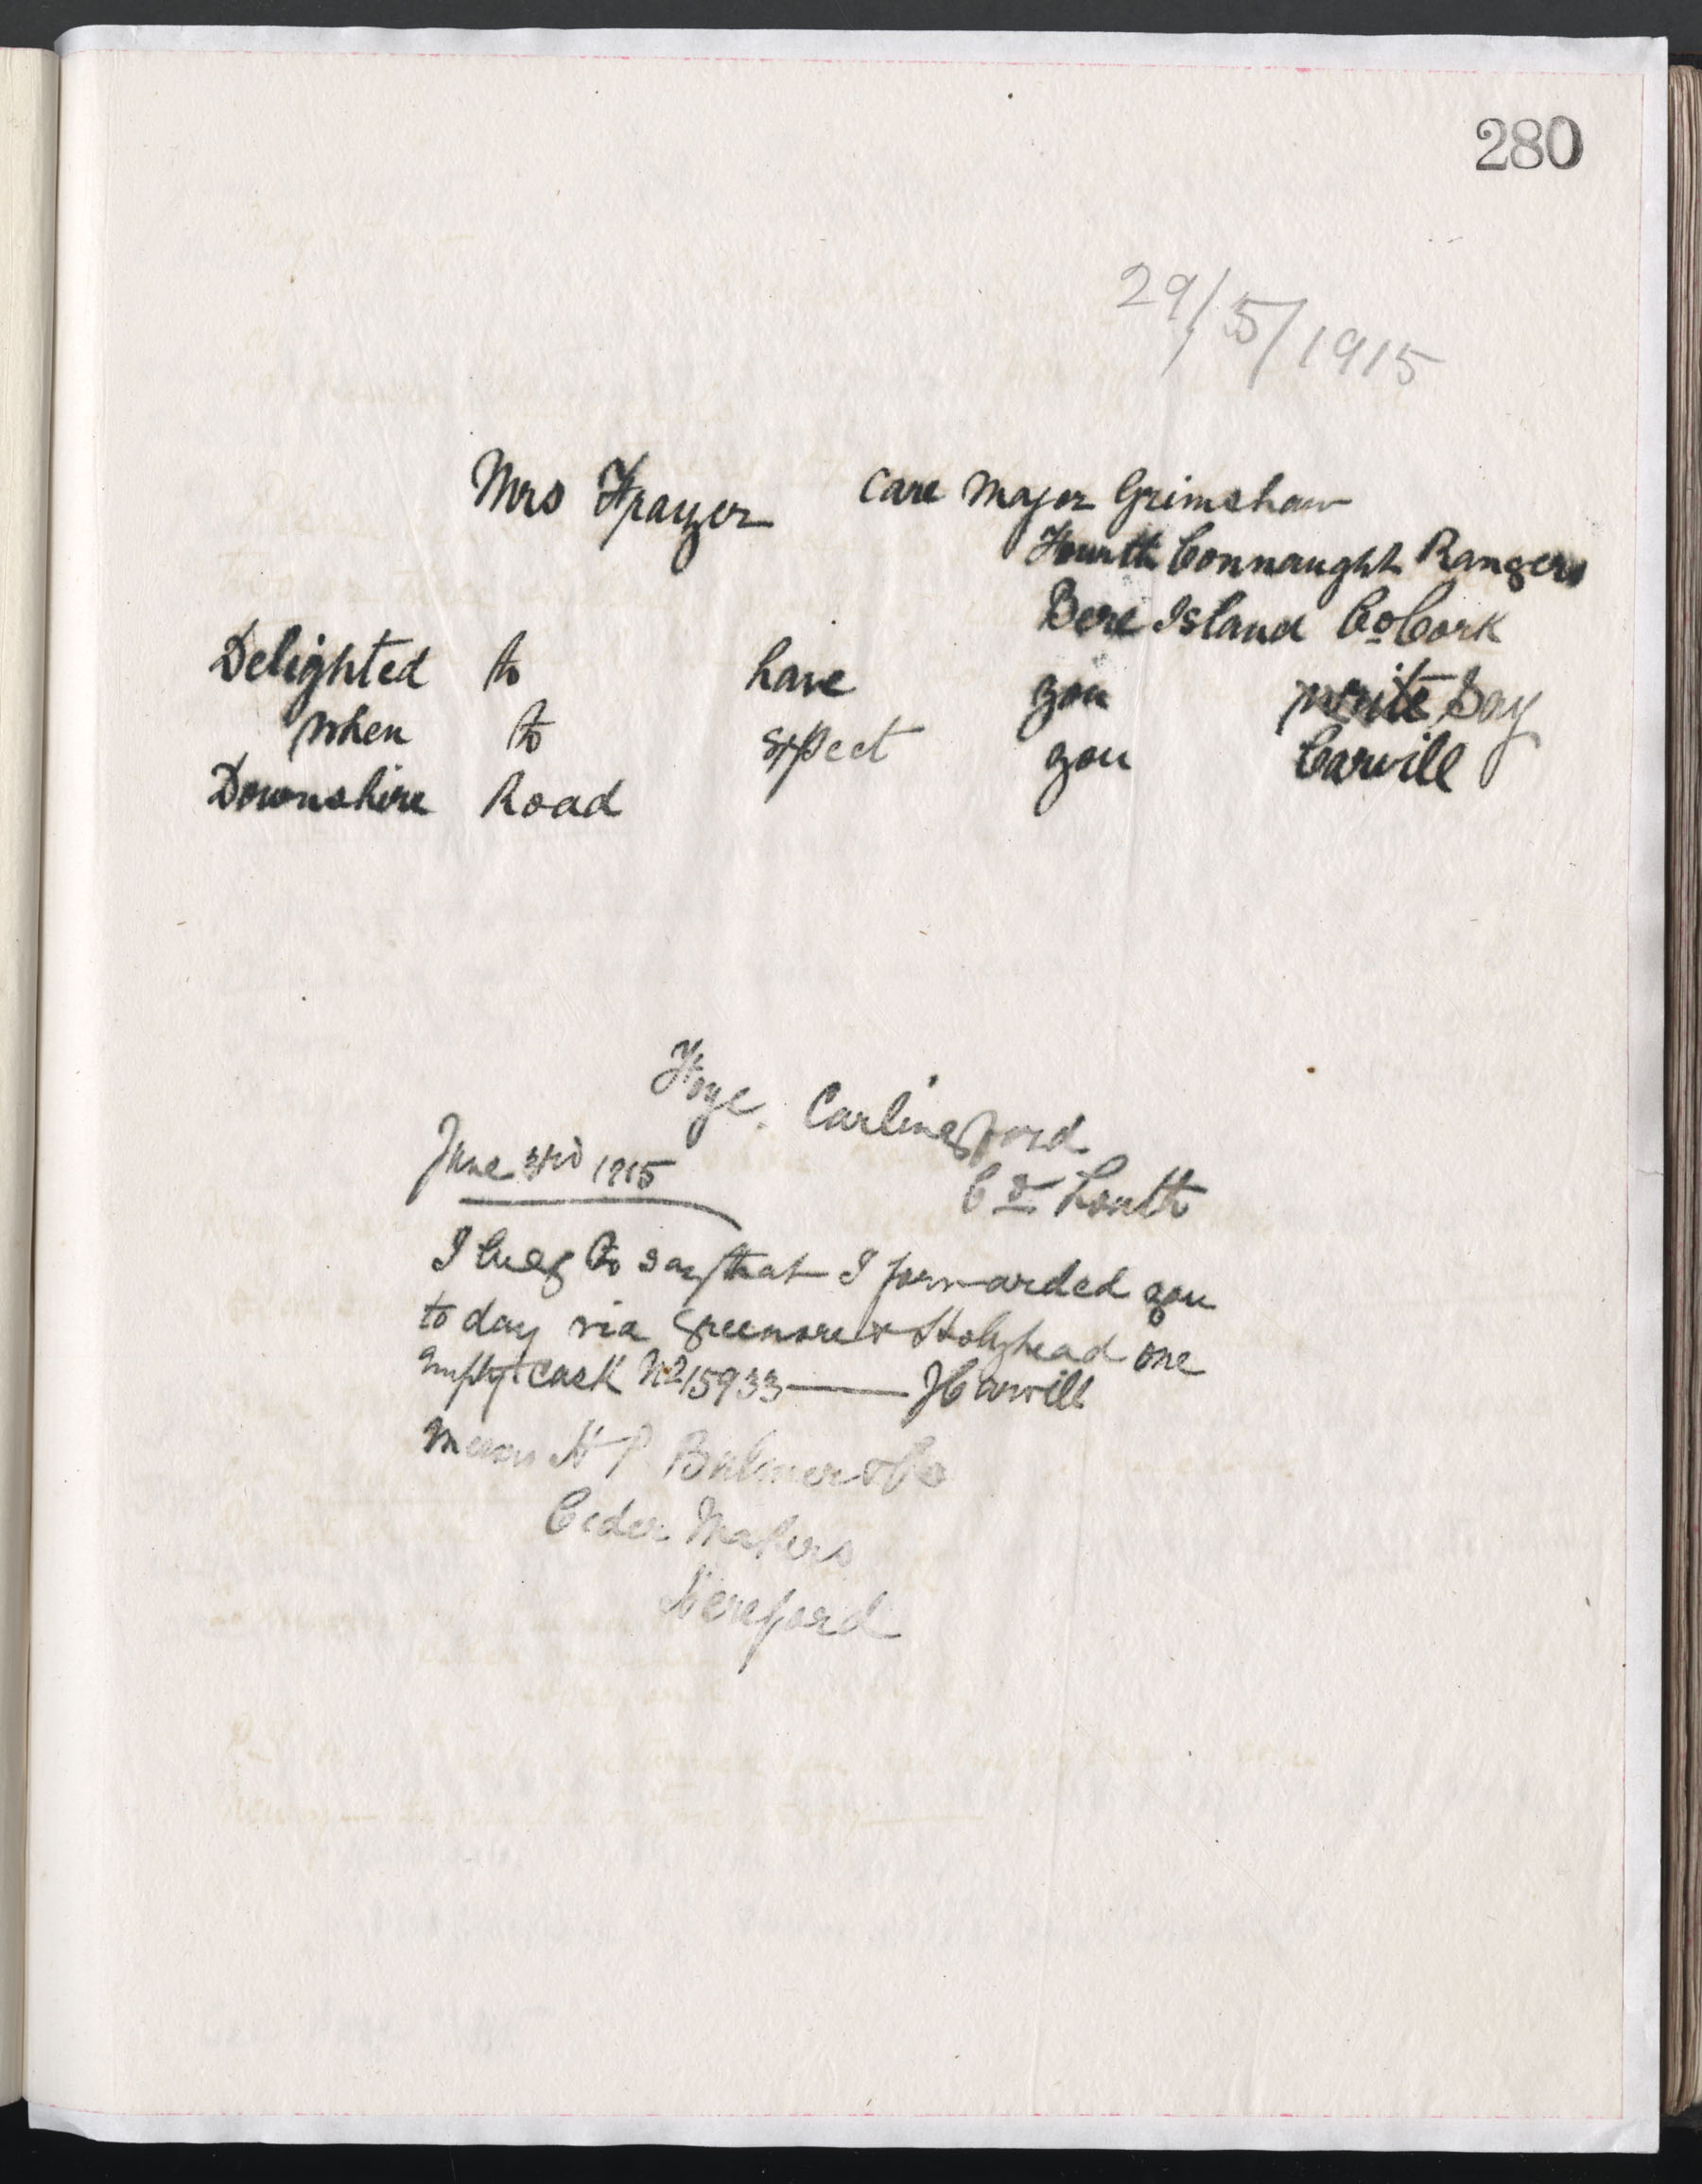 280
29/5/1915
Mrs Frazer care Major Grimshaw
Fourth Connaught Rangers
Bere Island Co Cork
Delighted to have you write say
when to expect you Carvill
Downshire Road
Carlingford
June 3rd 1915
Co Louth
I beg to say that I forwarded you
to day via Greenore & Holyhead one
empty cask No 15933 — JCarvill
Messrs H P Bulmer & Co
Cider Makers
Hereford